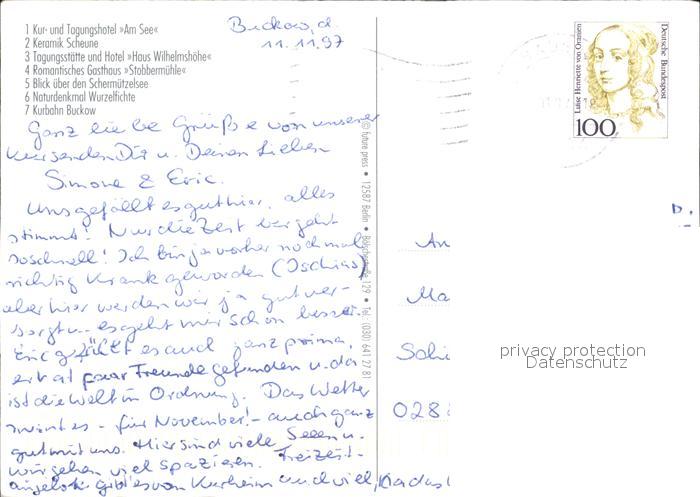 1 Kur- und Tagungshotel »Am See«
2 Keramik Scheune
3 Tagungsstätte und Hotel »Haus Wilhelmshöhe«
4 Romantisches Gasthaus »Stobbermühle«
5 Blick über den Schermützelsee
6 Naturdenkmal Wurzelfichte
7 Kurbahn Buckow
Buckow, d.
11.11.97
Ganz liebe Grüße von unserer
Kur senden Dir u. Deinen Lieben
Simone & Eric.
Uns gefällt es gut hier, alles
stimmt! Nur die Zeit vergeht
so schnell! Ich bin ja vorher nochmal
richtig krank geworden (Ischias)
aber hier werden wir ja gut ver-
sorgt u. es geht mir schon besser.
Eric gefällt es auch ganz prima,
er hat paar Freunde gefunden u. da
ist die Welt in Ordnung. Das Wetter
meint es - für November! - auch ganz
gut mit uns. Hier sind viele Seen u.
wir gehen viel spazieren. Freizeit-
angebote gibt es vom Kurheim und viel,
© future press • 12587 Berlin • Bölschestraße 129 • Tel. (030) 641 27 81
Deutsche Bundespost
Luise Henriette von Oranien
100
D.
An
Ma
Schi
028
privacy protection
Datenschutz